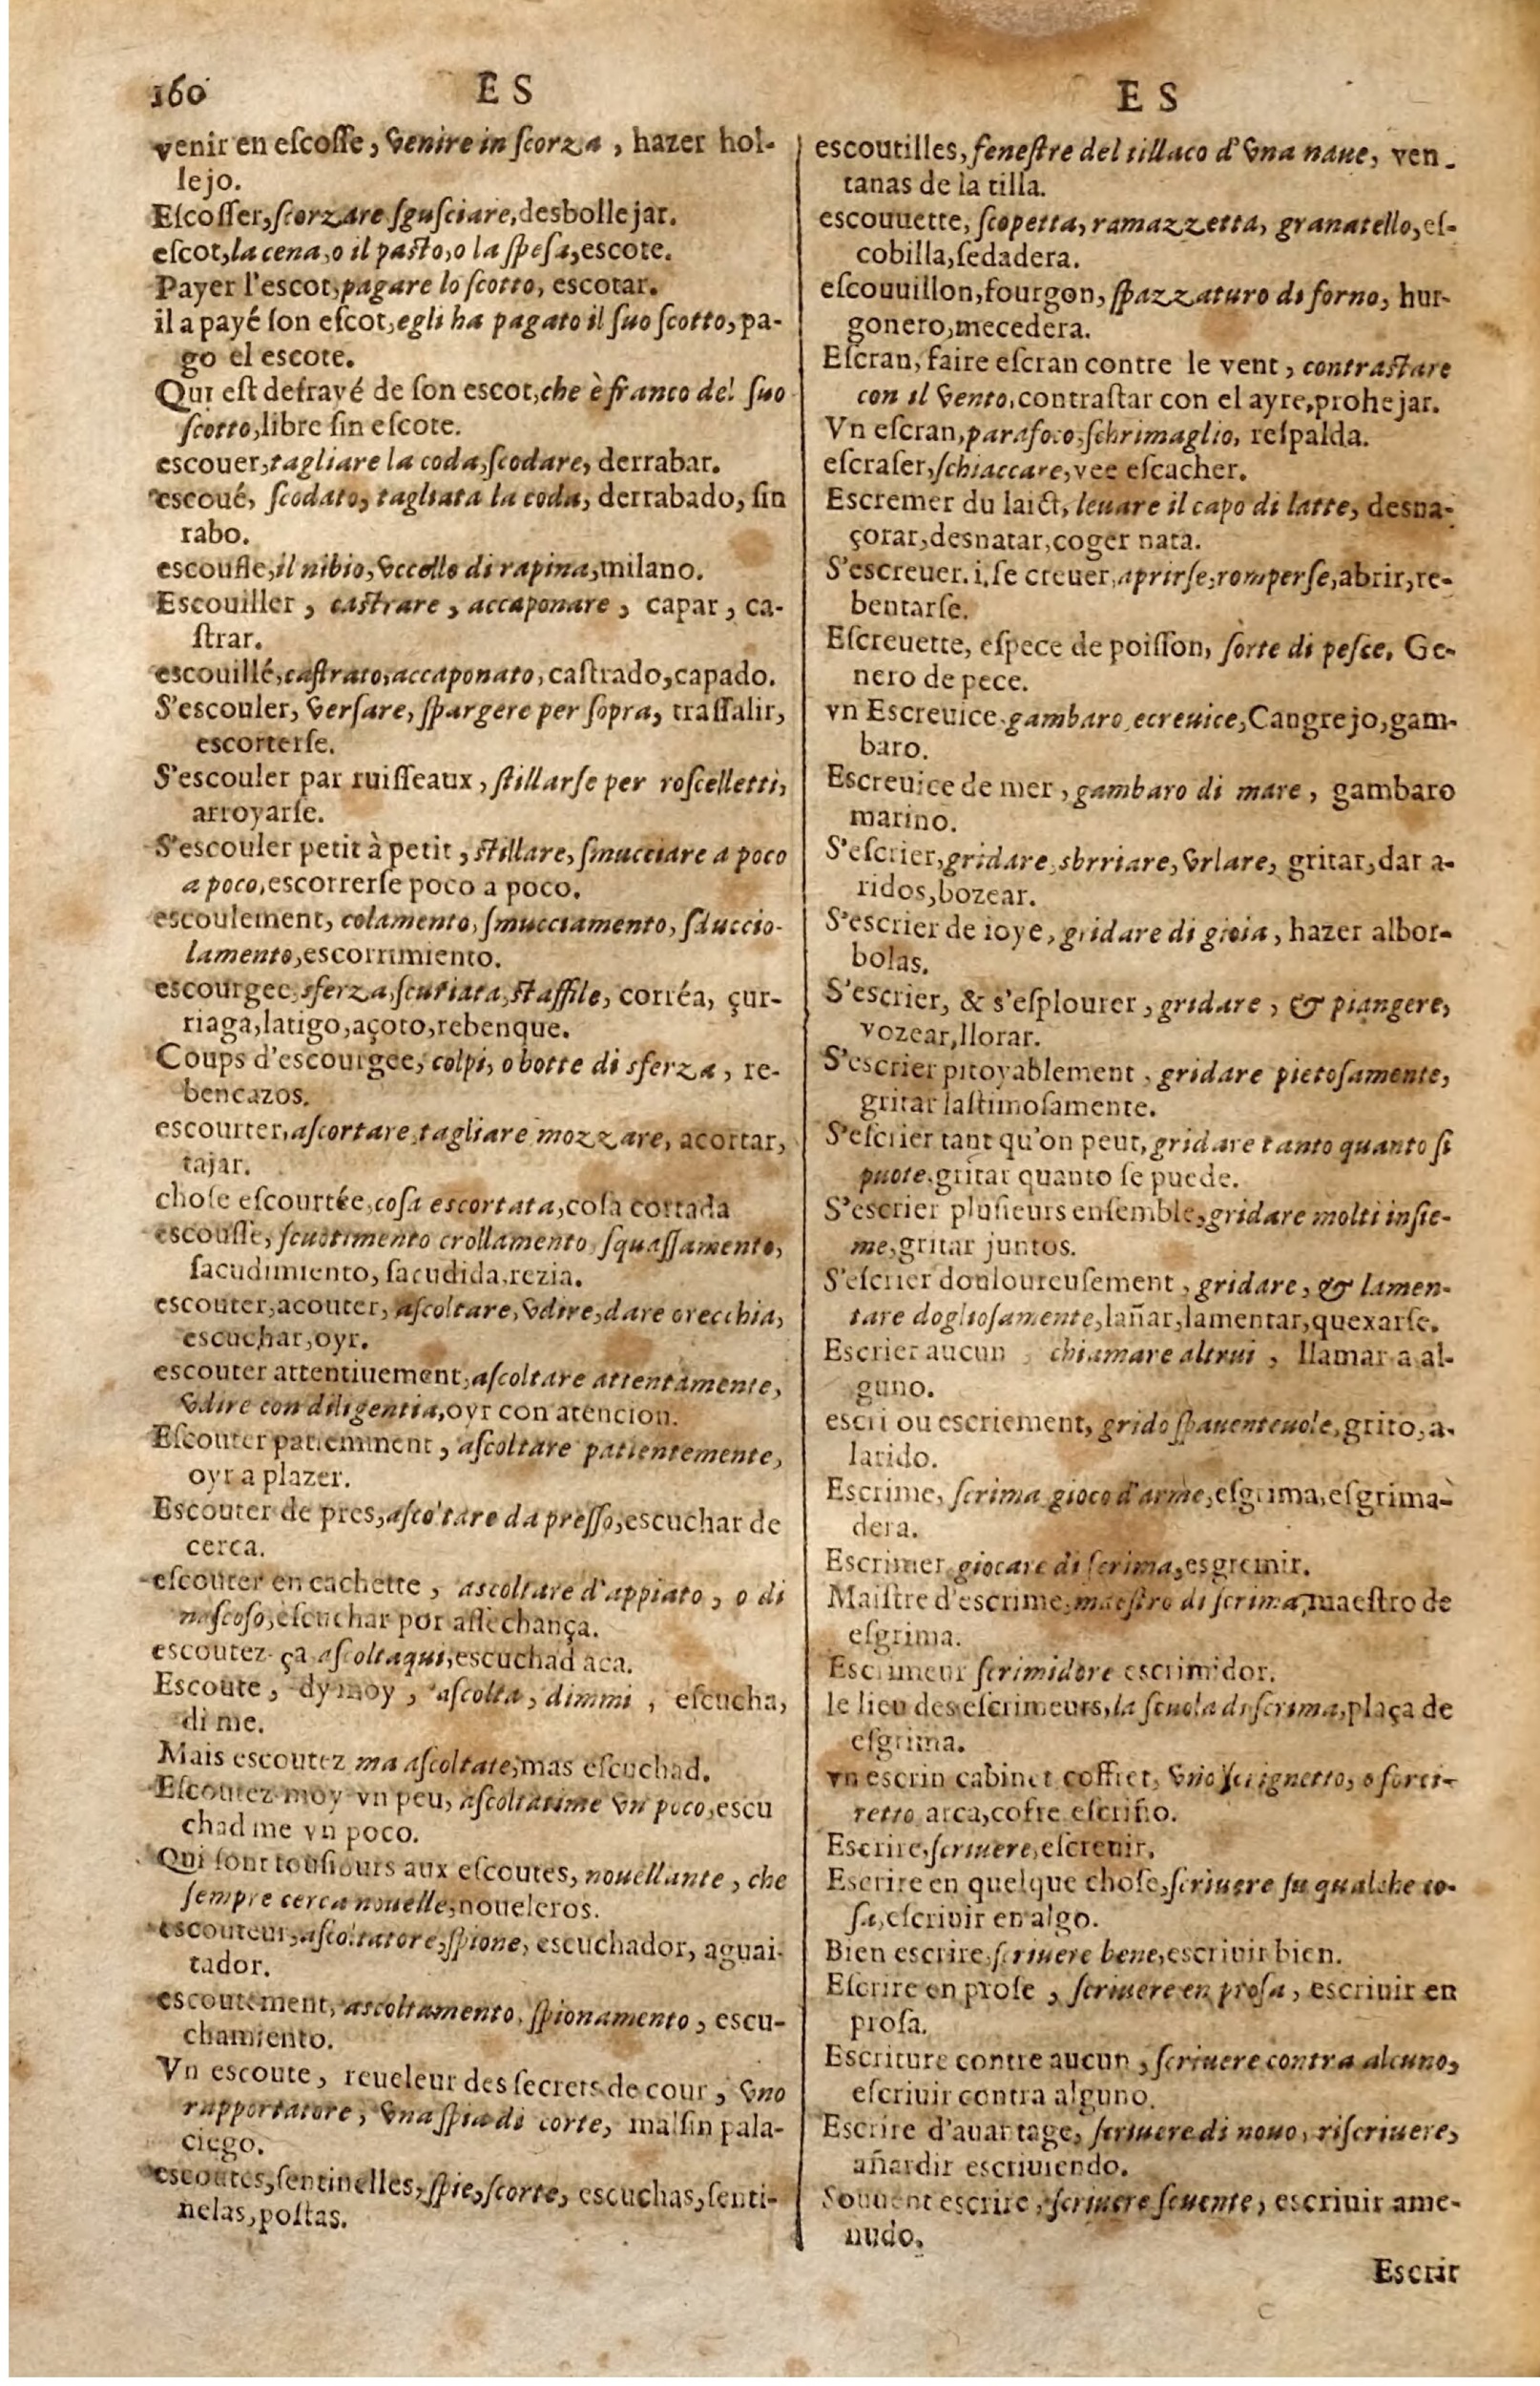 160
E S
venir en eſcoſſe, venire in ſcorza, hazer hol-
lejo.
Eſcoſſer, ſcorzare ſguſciare, desbollejar.
eſcot, la cena, o il paſto, o la ſpeſa, escote.
Payer l'escot, pagare lo ſcotto, escotar.
il a payé ſon eſcot, egli ha pagato il ſuo ſcotto, pa-
go el escote.
Qui eſt defrayé de ſon escot, che è franco del ſuo
ſcotto, libre ſin eſcote.
escouer, tagliare la coda, ſcodare, derrabar.
escoué, ſcodato, tagliata la coda, derrabado, ſin
rabo.
escoufle, il nibio, vccello di rapina, milano.
Escouiller, caſtrare, accaponare, capar, ca-
ſtrar.
escouillé, caſtrato, accaponato, caſtrado, capado.
S'escouler, verſare, ſpargere per ſopra, traſſalir,
escorterſe.
S'escouler par ruiſſeaux, ſtillarſe per roſcelletti,
arroyarſe.
S'escouler petit à petit, ſtillare, ſmucciare a poco
a poco, escorrerſe poco a poco.
escoulement, colamento, ſmucciamento, ſduccio-
lamento, escorrimiento.
escourgee, sferza, ſcuriata, ſtaffile, corréa, çur-
riaga, latigo, açoto, rebenque.
Coups d'escourgee, colpi, o botte di sferza, re-
bencazos.
escourter, aſcortare, tagliare mozzare, acortar,
tajar.
choſe eſcourtée, coſa escortata, coſa cortada
escouſſe, ſcuotimento crollamento, ſquaſſamento,
ſacudimiento, ſacudida, rezia.
escouter, acouter, aſcoltare, vdire, dare orecchia,
escuchar, oyr.
escouter attentiuement, aſcoltare attentamente,
vdire con diligentia, oyr con atencion.
Eſcouter patiemment, aſcoltare patientemente,
oyr a plazer.
Escouter de pres, aſcoltare da preſſo, escuchar de
cerca.
eſcouter en cachette, ascoltare d'appiato, o di
naſcoſo, eſcuchar por aſſechança.
escoutez ça aſcolta qui, escuchad aca.
Escoute, dy moy, aſcolta, dimmi, eſcucha,
di me.
Mais escoutez ma aſcoltate, mas eſcuchad.
Eſcoutez moy vn peu, aſcoltatime vn poco, escu
chad me vn poco.
Qui ſont touſiours aux eſcoutes, nouellante, che
ſempre cerca nouelle, noueleros.
escouteur, aſcoltatore, ſpione, escuchador, aguai-
tador.
escoutement, ascoltamento, ſpionamento, escu-
chamiento.
Vn escoute, reueleur des ſecrets de cour, vno
rapportatore, vna ſpia di corte, malſin pala-
ciego.
escoutes, ſentinelles, ſpie, ſcorte, escuchas, ſenti-
nelas, poſtas.
E S
escoutilles, feneſtre del tillaco d'vna naue, ven-
tanas de la tilla.
escouuette, ſcopetta, ramazzetta, granatello, eſ-
cobilla, ſedadera.
eſcouuillon, fourgon, ſpazzaturo di forno, hur-
gonero, mecedera.
Eſcran, faire eſcran contre le vent, contraſtare
con il vento, contraſtar con el ayre, prohejar.
Vn eſcran, parafoco, ſchrimaglio, reſpalda.
eſcraſer, ſchiaccare, vee eſcacher.
Escremer du laict, leuare il capo di latte, desna-
çorar, desnatar, coger nata.
S'escreuer. i. ſe creuer, aprirſe, romperſe, abrir, re-
bentarſe.
Eſcreuette, eſpece de poiſſon, ſorte di peſce. Ge-
nero de pece.
vn Escreuice, gambaro, ecreuice, Cangrejo, gam-
baro.
Escreuice de mer, gambaro di mare, gambaro
marino.
S'eſcrier, gridare, sbrriare, vrlare, gritar, dar a-
ridos, bozear.
S'escrier de ioye, gridare di gioia, hazer albor-
bolas.
S'escrier, & s'eſplourer, gridare, & piangere,
vozear, llorar.
S'escrier pitoyablement, gridare pietoſamente,
gritar laſtimoſamente.
S'eſcrier tant qu'on peut, gridare tanto quanto ſi
puote, gritar quanto ſe puede.
S'escrier pluſieurs enſemble, gridare molti inſie-
me, gritar juntos.
S'eſcrier douloureuſement, gridare, & lamen-
tare doglioſamente, lañar, lamentar, quexarſe.
Escrier aucun, chiamare altrui, llamar a al-
guno.
escri ou escriement, grido ſpauenteuole, grito, a-
larido.
Escrime, ſcrima gioco d'arme, eſgrima, eſgrima-
dera.
Escrimer giocare di ſcrima, esgremir.
Maiſtre d'escrime, maeſtro di ſcrima, maeſtro de
eſgrima.
Escrimeur ſcrimidore escrimidor.
le lieu des eſcrimeurs, la ſcuola di ſcrima, plaça de
eſgrima.
vn escrin cabinet coffret, vno ſcrignetto, o forci-
retto arca, cofre eſcriño.
Escrire, ſcriuere, eſcreuir.
Escrire en quelque choſe, ſcriuere ſu qualche co-
ſa, eſcriuir en algo.
Bien escrire, ſcriuere bene, escriuir bien.
Eſcrire en proſe, ſcriuere en proſa, escriuir en
proſa.
Escriture contre aucun, ſcriuere contra alcuno,
eſcriuir contra alguno.
Escrire d'auantage, ſcriuere di nouo, riſcriuere,
añardir escriuiendo.
Souuent escrire, ſcriuere ſouente, escriuir ame-
nudo.
Escrit